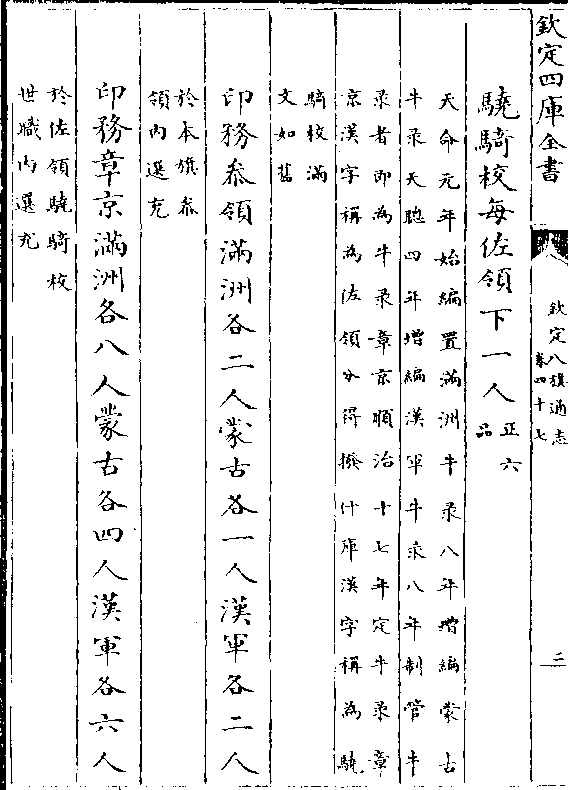 欽定四庫全書
欽定八旗通志
卷四十七
二
驍騎校每佐領下一人正六
品
天命元年始編置滿洲牛录八年增編蒙古
牛录天聰四年增編漢軍牛录八年制管牛
录者即為牛录章京順治十七年定牛录章
京漢字稱為佐領分得撥什庫漢字稱為驍
騎校滿
文如舊
印務叅領滿洲各二人蒙古各一人漢軍各二人
於本旗叅
領內選充
印務章京滿洲各八人蒙古各四人漢軍各六人
於佐領驍騎校
世職內選充